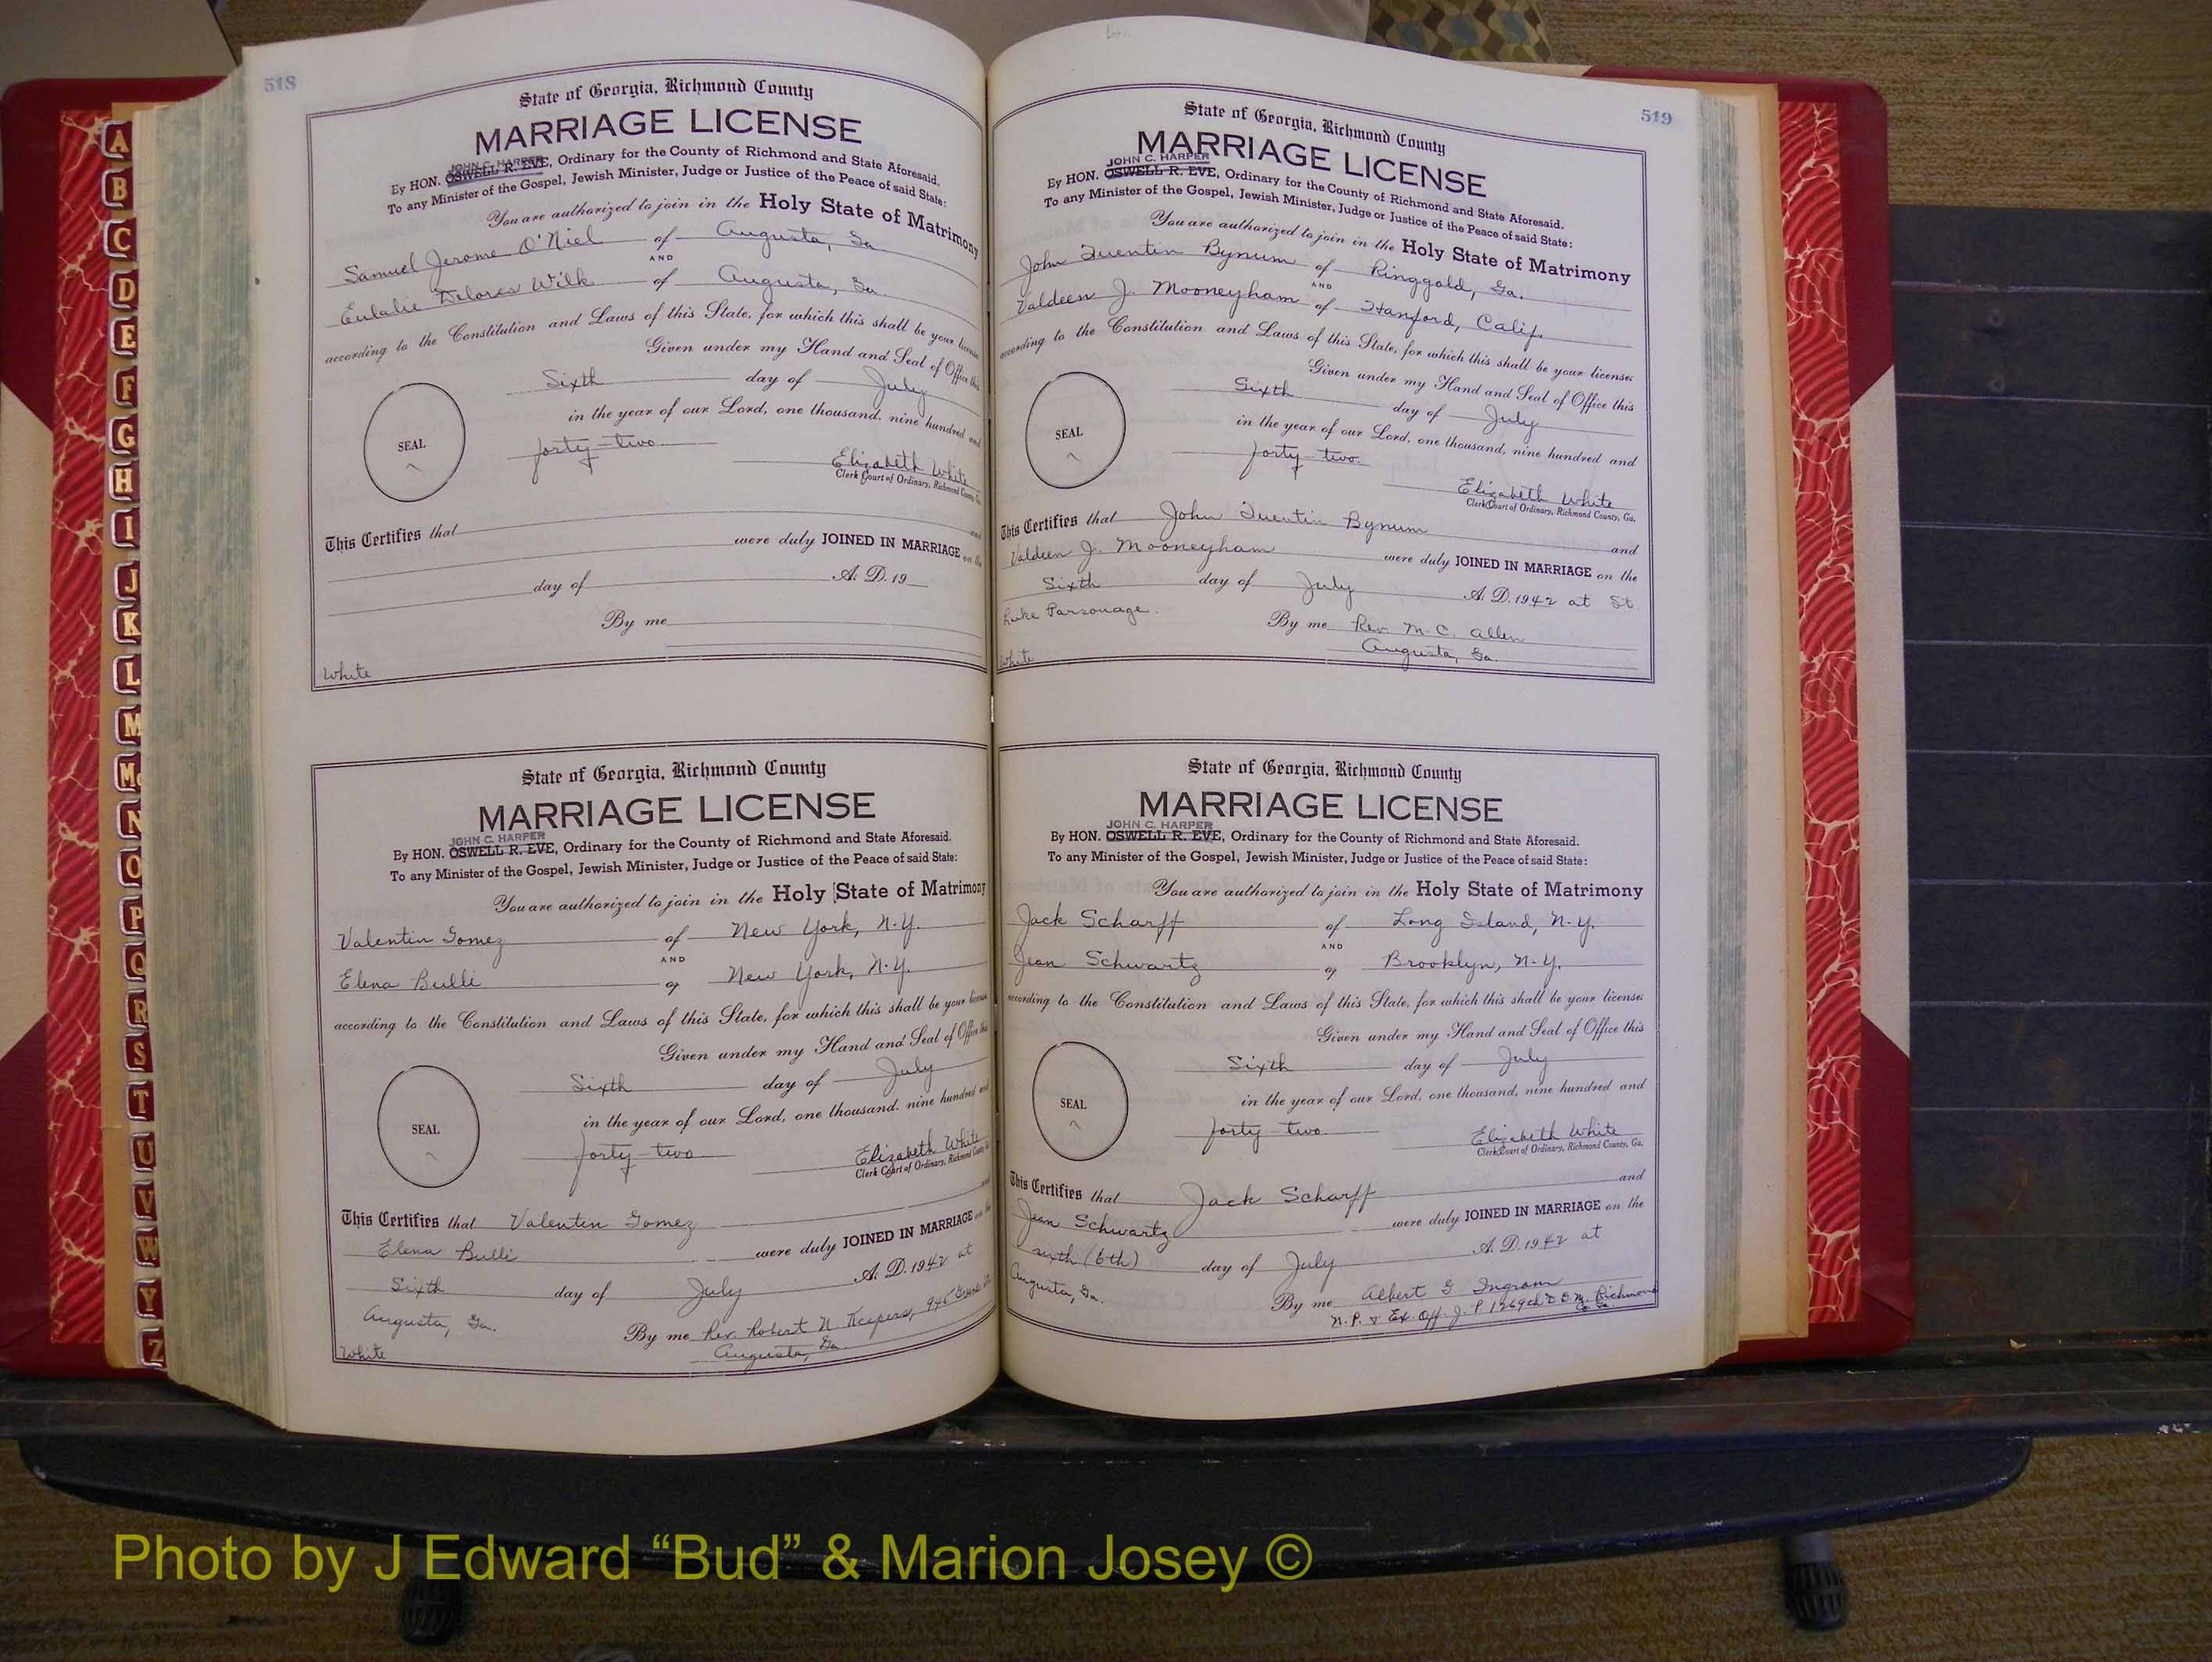 A
B
C
D
E
F
G
H
I
J
K
L
M
Mc
N
O
P
Q
R
S
T
U
V
W
Y
Z
518
State of Georgia, Richmond County
MARRIAGE LICENSE
JOHN C. HARPER
By HON. OSWELL R. EVE, Ordinary for the County of Richmond and State Aforesaid.
To any Minister of the Gospel, Jewish Minister, Judge or Justice of the Peace of said State:
You are authorized to join in the Holy State of Matrimony
Samuel Jerome O'Niel of Augusta, Ga
AND
Eulalie Delores Wilk of Augusta, Ga.
according to the Constitution and Laws of this State, for which this shall be your license
Given under my Hand and Seal of Office this
Sixth day of July
in the year of our Lord, one thousand, nine hundred and
SEAL
forty-two
Elizabeth White
Clerk Court of Ordinary, Richmond County, Ga.
This Certifies that and
were duly JOINED IN MARRIAGE on the
day of A. D. 19
By me
White
State of Georgia, Richmond County
MARRIAGE LICENSE
JOHN C. HARPER
By HON. OSWELL R. EVE, Ordinary for the County of Richmond and State Aforesaid.
To any Minister of the Gospel, Jewish Minister, Judge or Justice of the Peace of said State:
You are authorized to join in the Holy State of Matrimony
Valentin Gomez of New York, N.Y.
AND
Elena Bulli of New York, N.Y.
according to the Constitution and Laws of this State, for which this shall be your license
Given under my Hand and Seal of Office this
Sixth day of July
in the year of our Lord, one thousand, nine hundred and
SEAL
forty-two
Elizabeth White
Clerk Court of Ordinary, Richmond County, Ga.
This Certifies that Valentin Gomez and
Elena Bulli were duly JOINED IN MARRIAGE on the
Sixth day of July A. D. 1942 at
Augusta, Ga.
By me Rev. Robert N. Keepers, 945
Augusta, Ga.
White
519
State of Georgia, Richmond County
MARRIAGE LICENSE
JOHN C. HARPER
By HON. OSWELL R. EVE, Ordinary for the County of Richmond and State Aforesaid.
To any Minister of the Gospel, Jewish Minister, Judge or Justice of the Peace of said State:
You are authorized to join in the Holy State of Matrimony
John Quentin Bynum of Ringgold, Ga.
AND
Valdeen J. Mooneyham of Hanford, Calif.
according to the Constitution and Laws of this State, for which this shall be your license:
Given under my Hand and Seal of Office this
Sixth day of July
in the year of our Lord, one thousand, nine hundred and
SEAL
forty-two
Elizabeth White
Clerk Court of Ordinary, Richmond County, Ga.
This Certifies that John Quentin Bynum and
Valdeen J. Mooneyham were duly JOINED IN MARRIAGE on the
Sixth day of July A. D. 1942 at St
Luke Parsonage.
By me Rev. M. C. Allen
Augusta, Ga.
White
State of Georgia, Richmond County
MARRIAGE LICENSE
JOHN C. HARPER
By HON. OSWELL R. EVE, Ordinary for the County of Richmond and State Aforesaid.
To any Minister of the Gospel, Jewish Minister, Judge or Justice of the Peace of said State:
You are authorized to join in the Holy State of Matrimony
Jack Scharff of Long Island, N.Y.
AND
Jean Schwartz of Brooklyn, N.Y.
according to the Constitution and Laws of this State, for which this shall be your license:
Given under my Hand and Seal of Office this
Sixth day of July
in the year of our Lord, one thousand, nine hundred and
SEAL
forty-two
Elizabeth White
Clerk Court of Ordinary, Richmond County, Ga.
This Certifies that Jack Scharff and
Jean Schwartz were duly JOINED IN MARRIAGE on the
sixth (6th) day of July A. D. 1942 at
Augusta, Ga.
By me Albert G Ingram
N. P. & Ex. Off. J. P 1269th D G.M. Richmond
Co. Ga.
Photo by J Edward “Bud” & Marion Josey ©